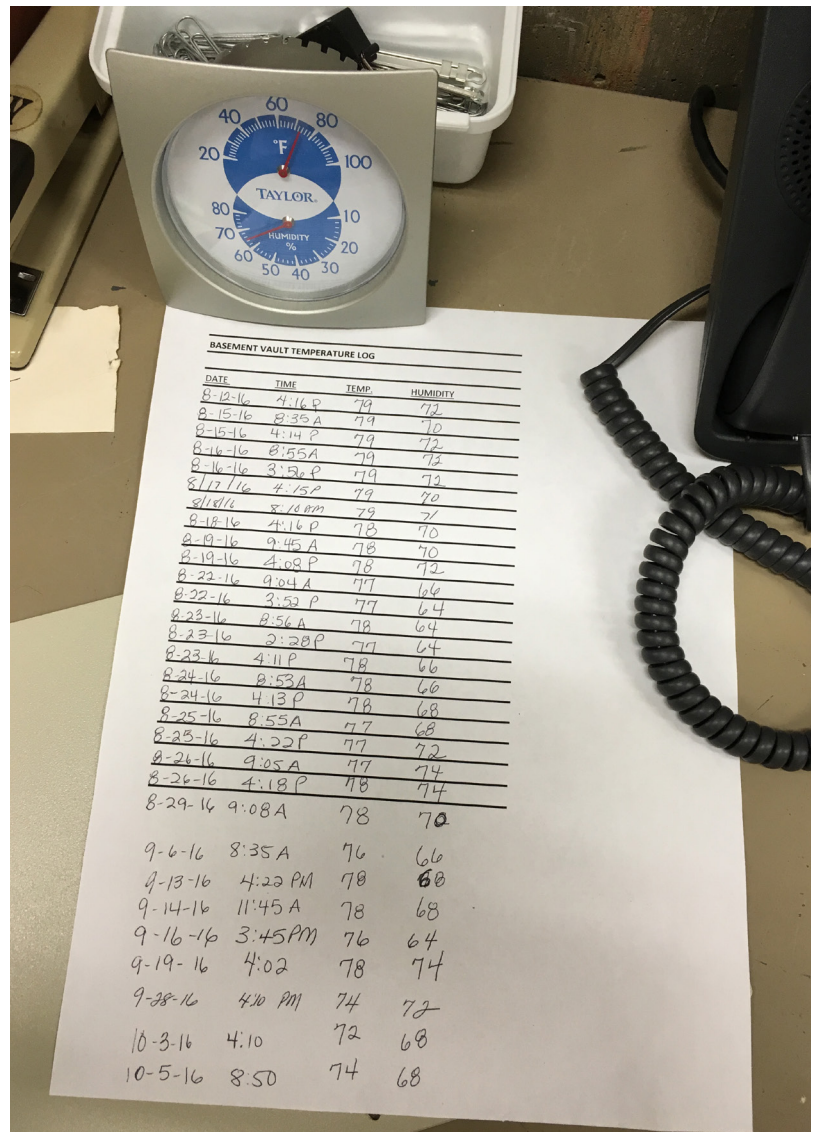 60
40 80
°F
20 100
TAYLOR
80 10
70 HUMIDITY 20
%
60 30
50 40
BASEMENT VAULT TEMPERATURE LOG
DATE TIME TEMP. HUMIDITY
8-12-16 4:16 P 79 72
8-15-16 8:35 A 79 70
8-15-16 4:14 P 79 72
8-16-16 8:55A 79 73
8-16-16 3:56 P 79 72
8/17/16 4:15P 79 70
8/18/16 8:10 AM 79 71
8-18-16 4:16 P 78 70
8-19-16 9:45 A 78 70
8-19-16 4:08 P 78 72
8-22-16 9:04 A 77 66
8-22-16 3:52 P 77 64
8-23-16 8:56 A 78 64
8-23-16 2:28P 77 64
8-23-16 4:11 P 78 66
8-24-16 8:53A 78 66
8-24-16 4:13 P 78 68
8-25-16 8:55A 77 68
8-25-16 4:22P 77 72
8-26-16 9:05 A 77 74
8-26-16 4:18 P 78 74
8-29-16 9:08A 78 70
9-6-16 8:35 A 76 66
9-13-16 4:22 PM 78 68
9-14-16 11:45 A 78 68
9-16-16 3:45PM 76 64
9-19-16 4:02 78 74
9-28-16 4:10 PM 74 72
10-3-16 4:10 72 68
10-5-16 8:50 74 68